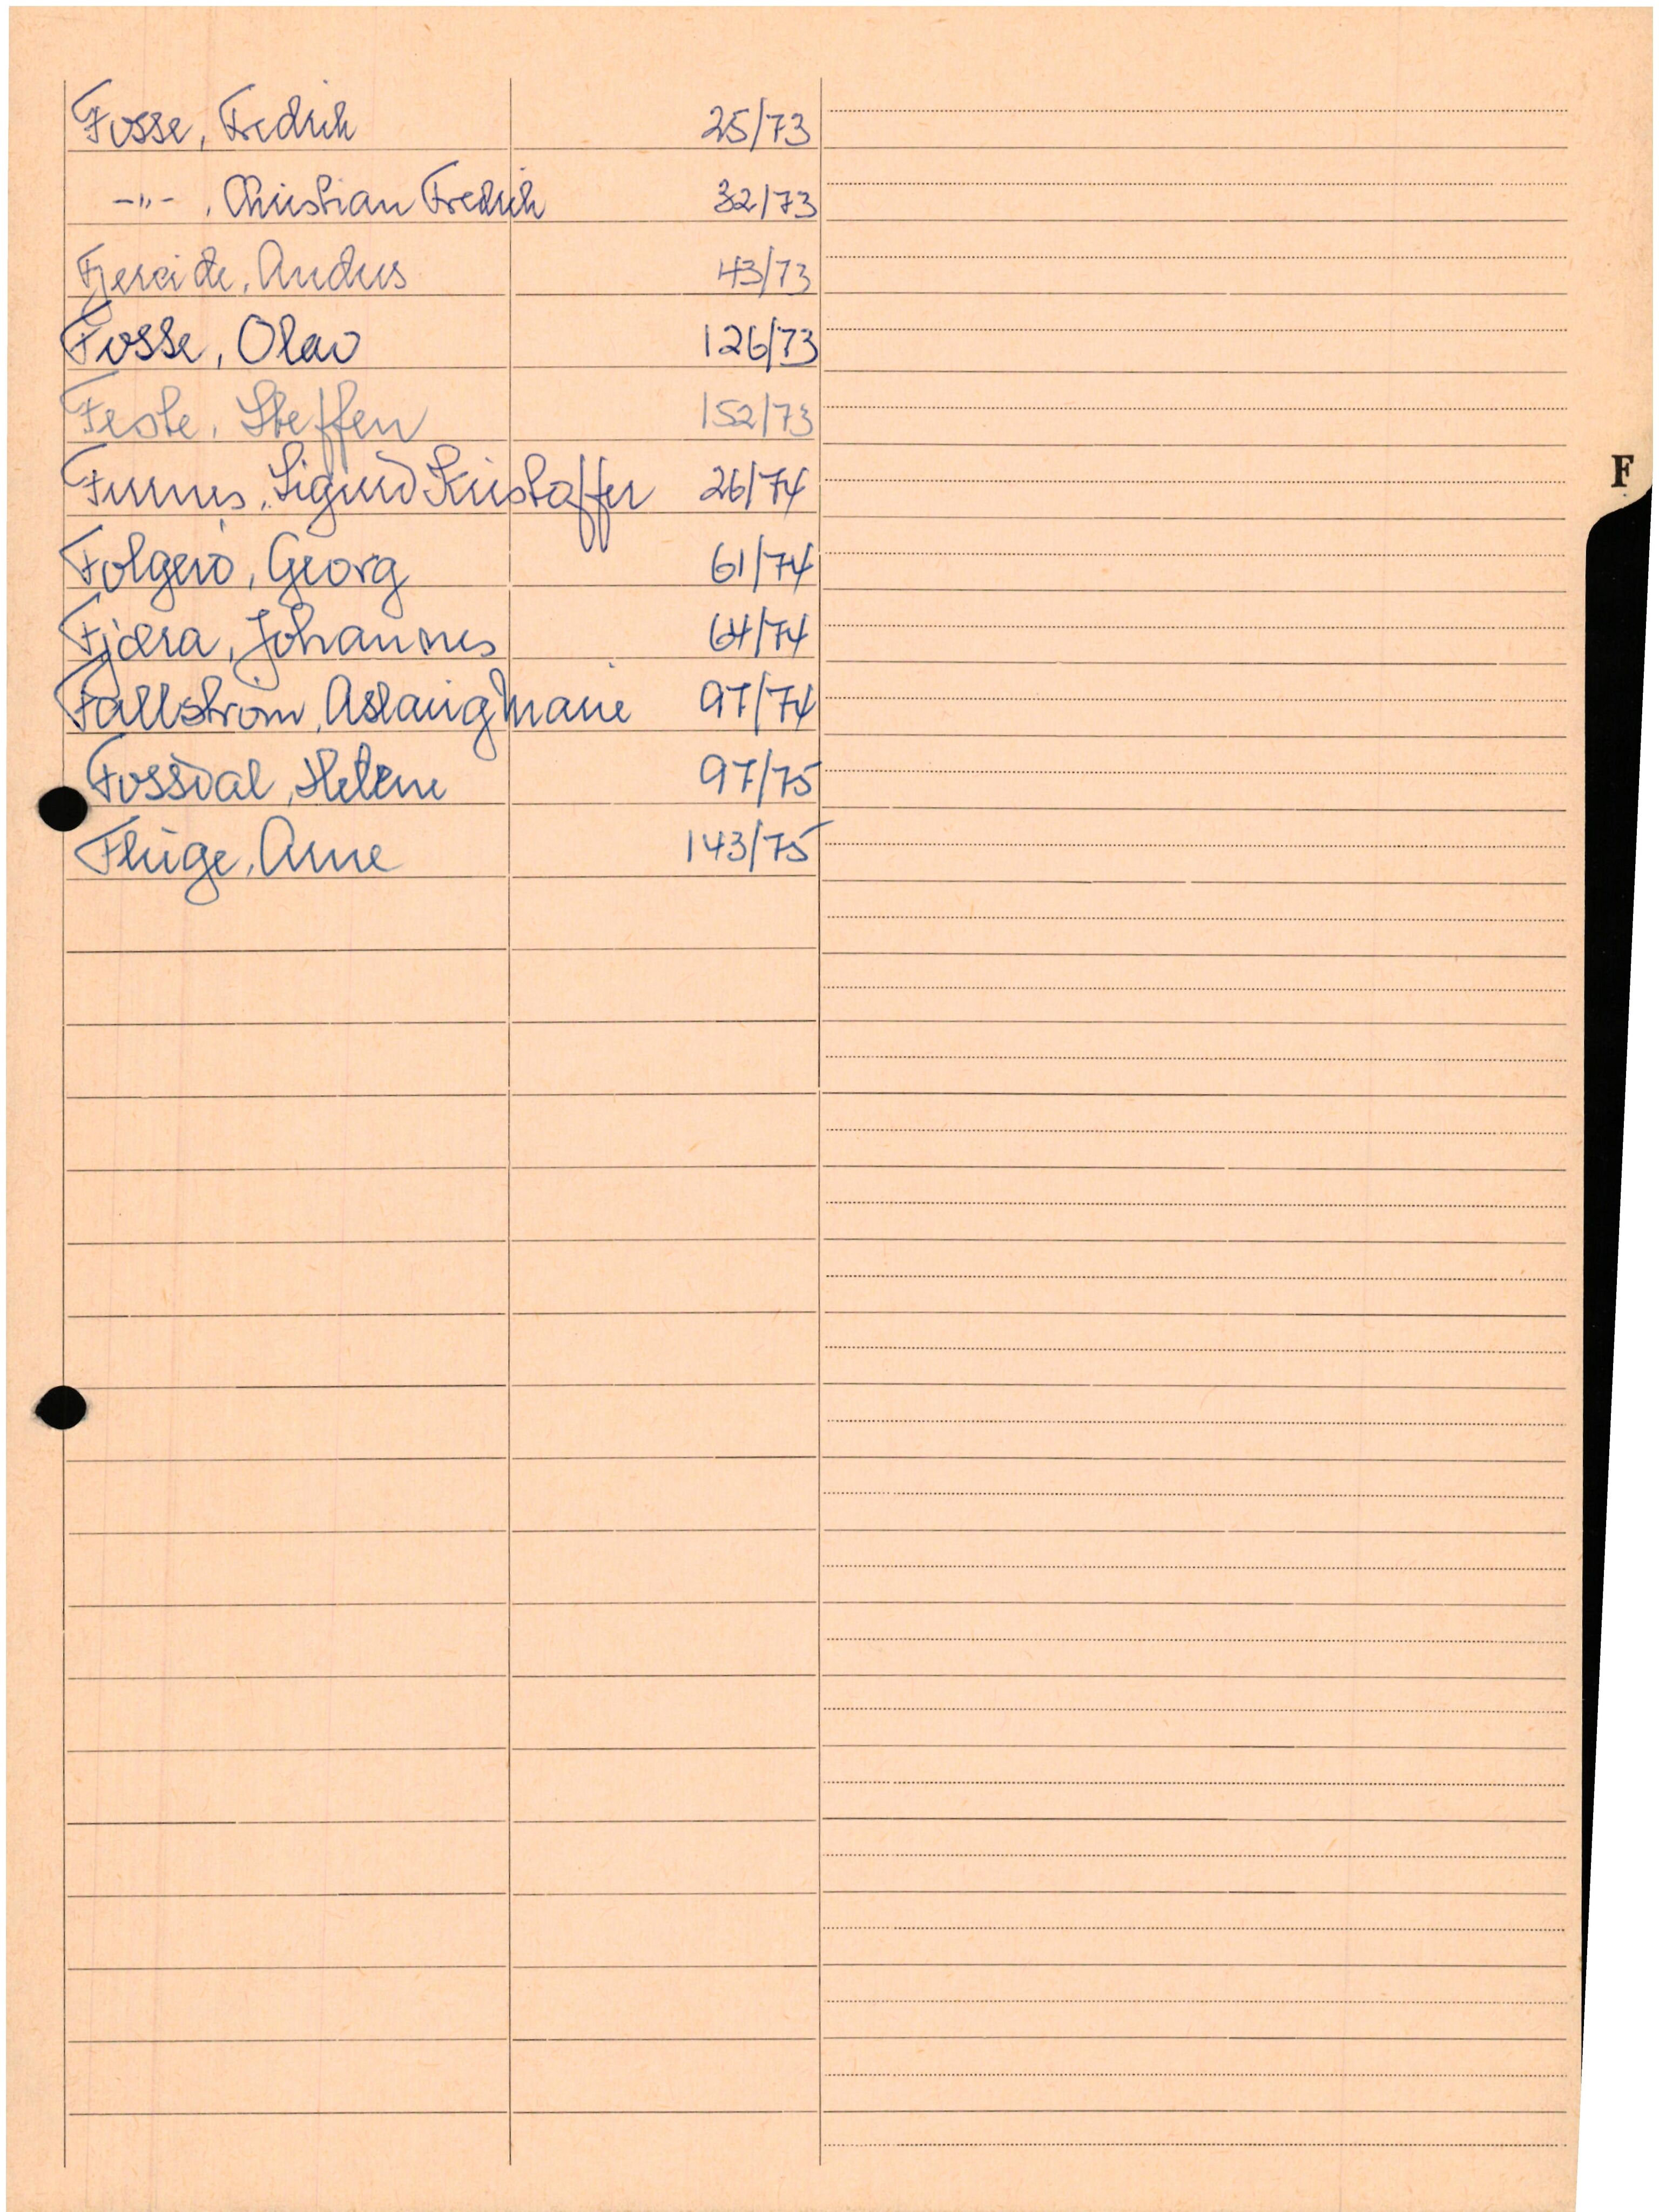 Fosse, Fredrik 25/73
-"- , Christian Fredrik 32/73
Fjereide, Anders 43/73
Fosse, Olav 126/73
Feste, Steffen 152/73
Furnes, Sigurd Kristoffer 26/74
F
Folgerø, Georg 61/74
Fjæra, Johannes 64/74
Fallstrøm, Aslaug Marie 97/74
Fossdal, Helene 97/75
Fluge, Arne 143/75